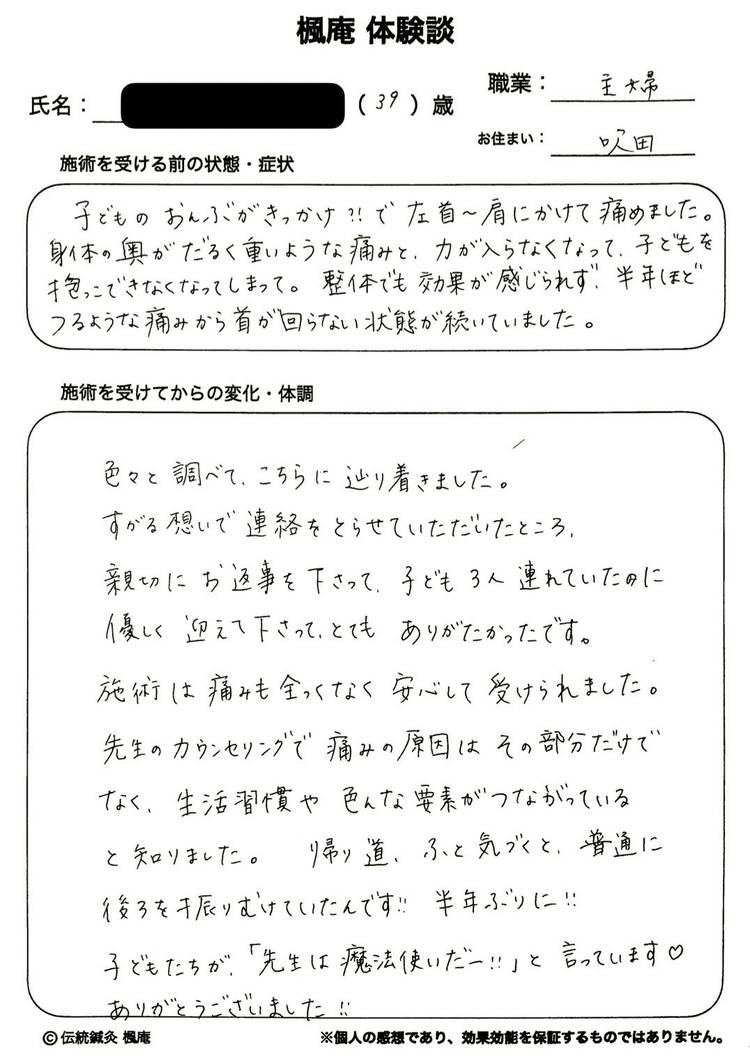 楓庵 体験談
氏名： （39）歳
職業： 主婦
お住まい： 吹田
施術を受ける前の状態・症状
子どものおんぶがきっかけ?!で左首～肩にかけて痛めました。
身体の奥がだるく重いような痛みと、力が入らなくなって、子どもを
抱っこできなくなってしまって。整体でも効果が感じられず、半年ほど
つるような痛みから首が回らない状態が続いていました。
施術を受けてからの変化・体調
色々と調べて、こちらに辿り着きました。
すがる想いで連絡をとらせていただいたところ、
親切にお返事を下さって、子ども3人連れていたのに
優しく迎えて下さって、とてもありがたかったです。
施術は痛みも全っくなく安心して受けられました。
先生のカウンセリングで痛みの原因はその部分だけで
なく、生活習慣や色んな要素がつながっている
と知りました。 帰り道、ふと気づくと、普通に
後ろを振りむけていたんです!! 半年ぶりに!!
子どもたちが、「先生は魔法使いだー!!」と言っています♡
ありがとうございました!!
©伝統鍼灸 楓庵
※個人の感想であり、効果効能を保証するものではありません。